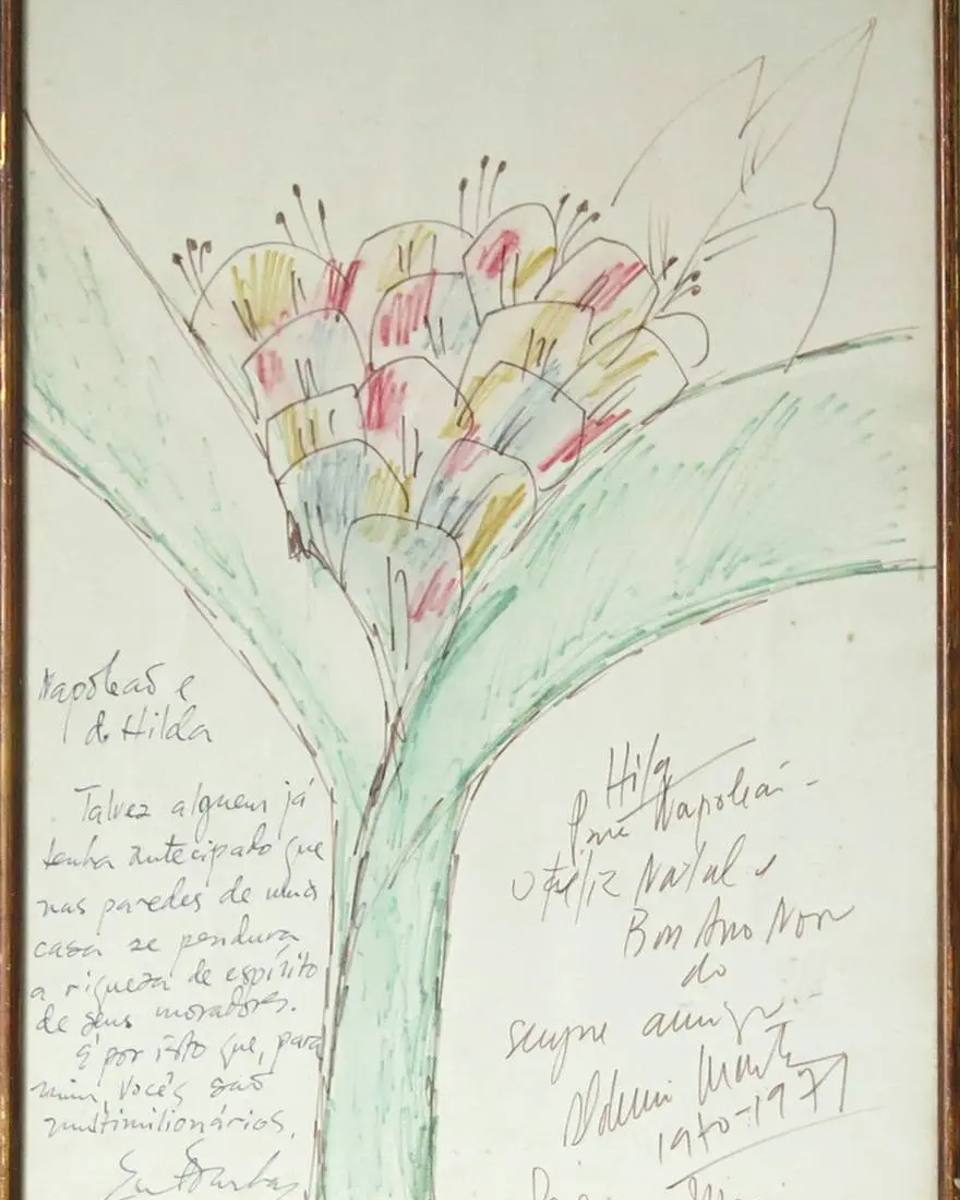 Napoleão e
d. Hilda
Talvez alguem já
tenha antecipado que
nas paredes de uma
casa se pendura
a riqueza de espírito
de seus moradores.
É por isto que, para
mim, vocês são
multimilionários.
Hilda
Napoleão -
feliz Natal e
Bom Ano Novo
do
sempre amigo
Aldemir Martins
1970-1971